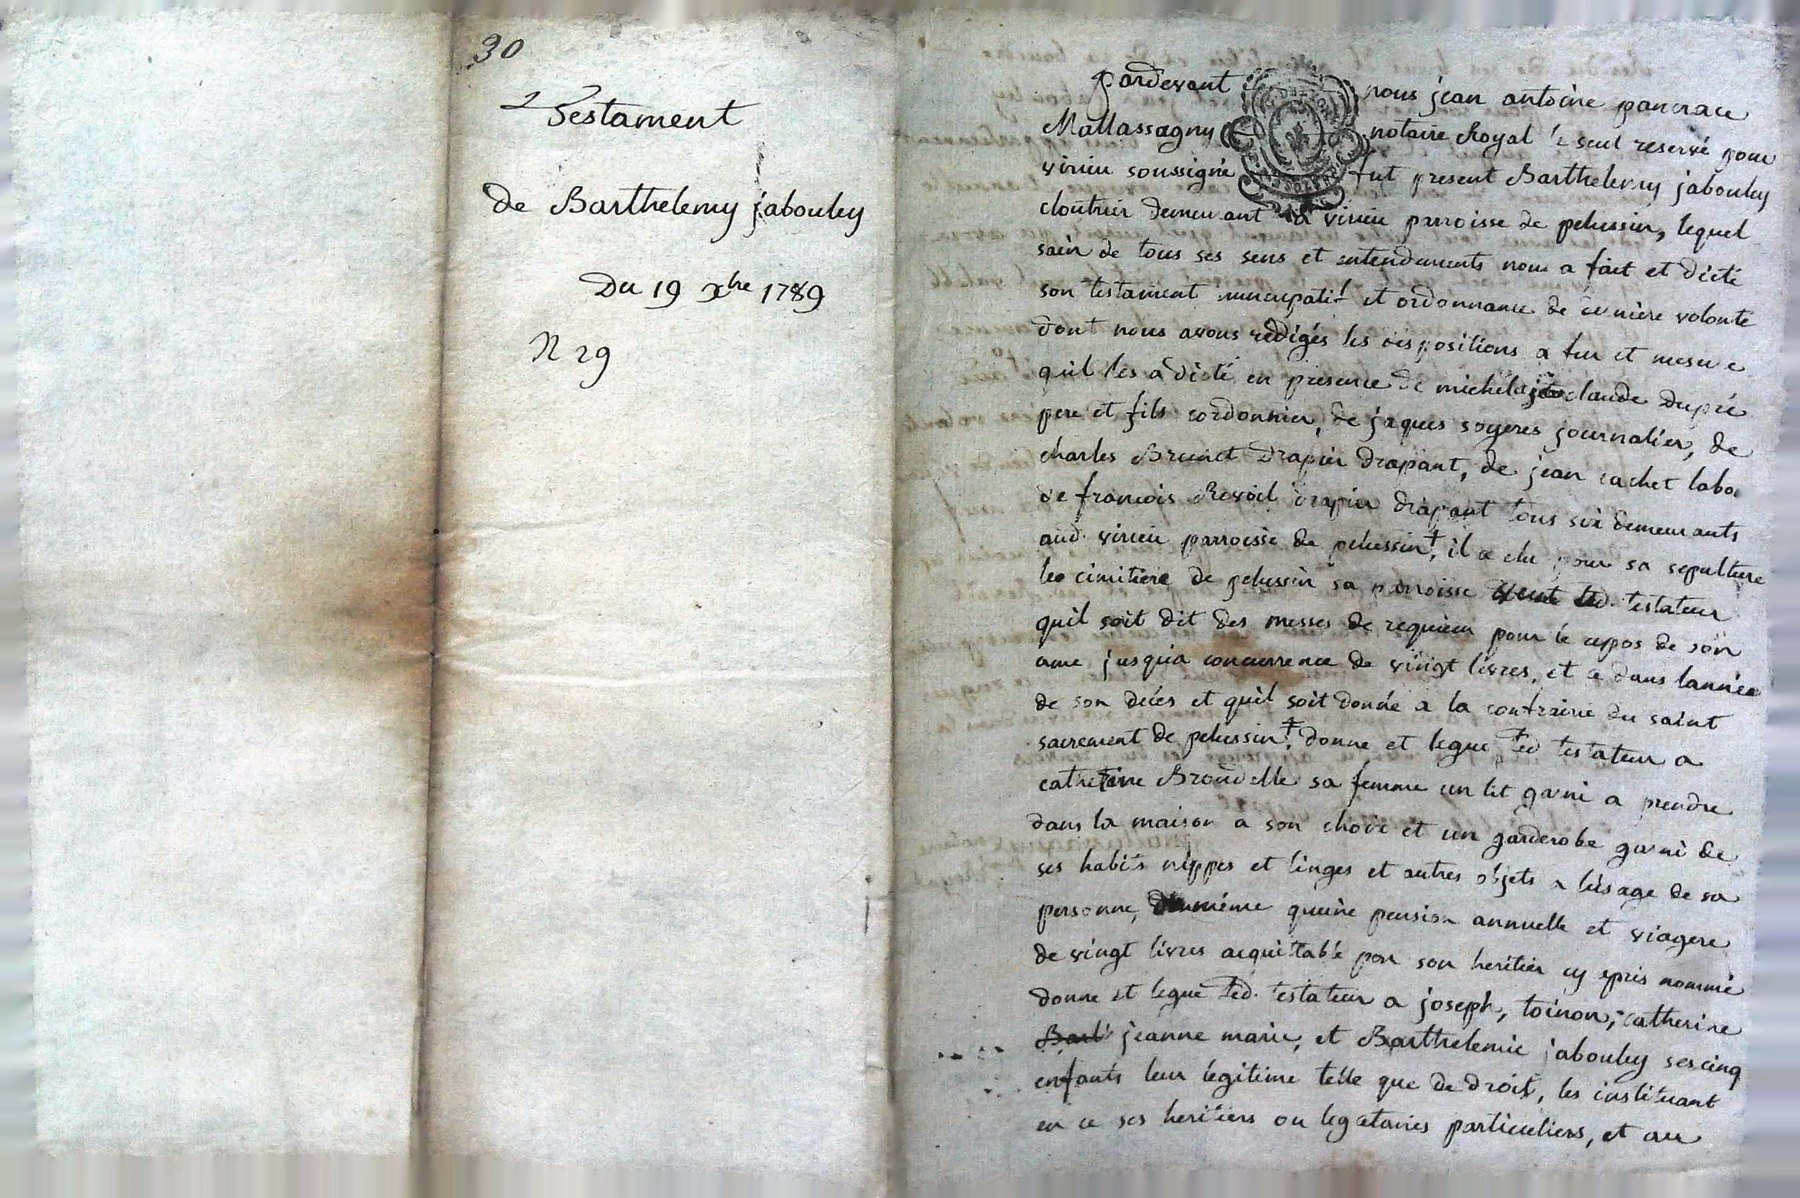 30
Testament
de Barthelemy jabouley
Du 19 xbre 1789
N 29
pardevant nous jean antoine pancrace
Mallassagny notaire Royal & seul reservé pour
virieu soussigné fut present Barthelemy jabouley
cloutrier demeurant a virieu parroisse de pelussin, lequel
sain de tous ses sens et entendements nous a fait et dicté
son testament nuncupatif et ordonnance de derniere volonté
dont nous avons rédigés les dispositions a fur et mesure
quil les a dicté en presence de michel & claude Dupré
pere et fils cordonnier, de jaques soyeres journalier, de
charles Brunet drapier drapant, de jean cachet labo.
de francois Revoil drapier drapant tous six demeurants
aud. virieu parroisse de pelussin ‡, il a elu pour sa sepulture
le cimitiere de pelussin sa parroisse veut led. testateur
quil soit dit des messes de requiem pour le repos de son
ame jusqua concurrence de vingt livres, et ce dans lannée
de son décés et quil soit donné a la confrairie du saint
sacrement de pelussin ‡, donne et legue led testateur a
catherine Brouvelle sa femme un lit garni a prendre
dans la maison a son choix et un garderobe garni de
ses habits nippes et linges et autres objets a lusage de sa
personne, de même quune pension annuelle et viagere
de vingt livres acquittable par son heritier cy aprés nommé
donne et legue led. testateur a joseph, toinon, catherine
Bart jeanne marie, et Barthelemie jabouley ses cinq
enfants leur légitime telle que de droit, les instituant
en ce ses heritiers ou legataires particuliers, et au